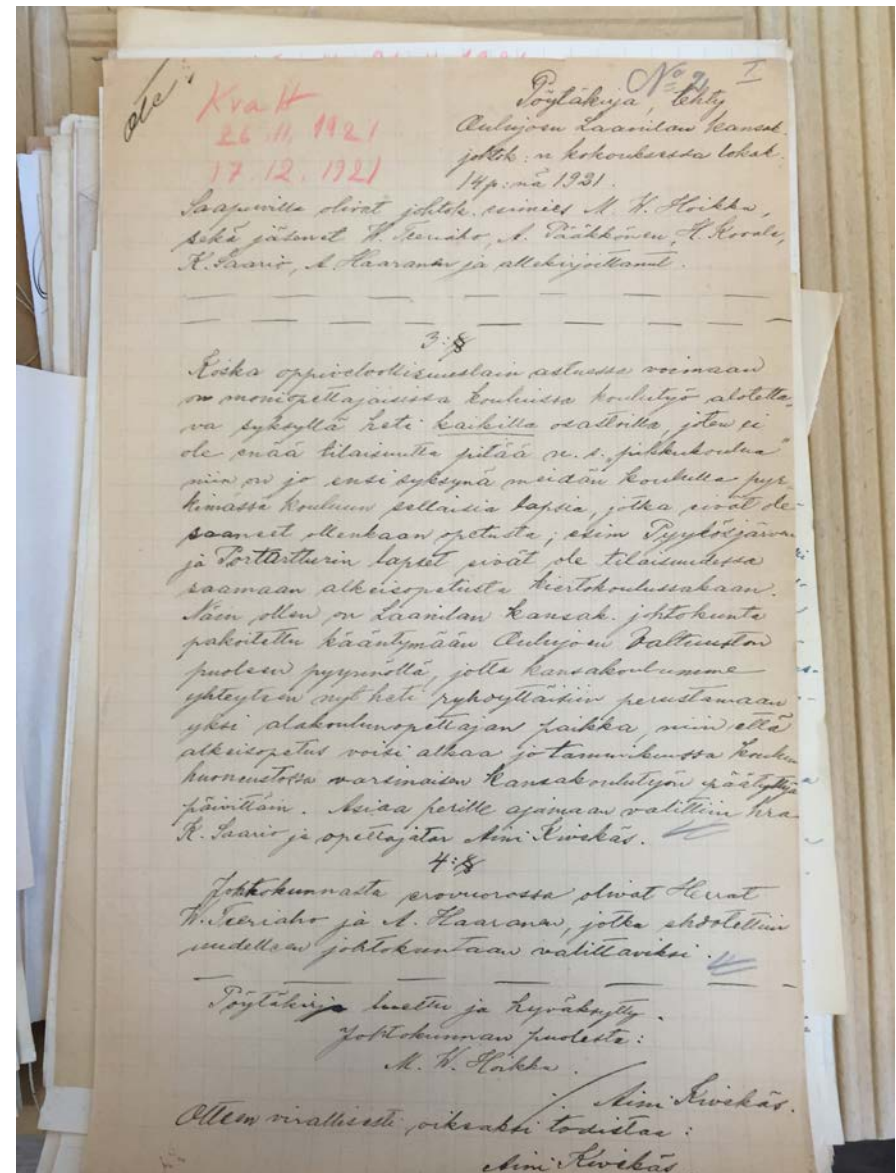 ote
Kva H
26.11.1921
17.12.1921
No 21 I
Pöytäkirja, tehty
Oulujoen Laanilan kansak.
johtok:n kokouksessa lokak.
14 p:nä 1921.
Saapuvilla olivat johtok. esimies M. W. Hoikka,
sekä jäsenet W. Teeriaho, A. Pääkkönen, H. Kovala,
K. Saario, A. Haaranen ja allekirjoittanut.
3:§
Koska oppivelvollisuuslain astuessa voimaan
on moniopettajaisissa kouluissa koulutyö alotetta-
va syksyllä heti kaikilla osastoilla, joten ei
ole enää tilaisuutta pitää n. s. „pikkukoulua"
niin on jo ensi syksynä meidän koululla pyr-
kimässä kouluun sellaisia lapsia, jotka eivät ole
saaneet ollenkaan opetusta; esim Pyykösjärven
ja Portartturin lapset eivät ole tilaisuudessa
saamaan alkeisopetusta kiertokoulussakaan.
Näin ollen on Laanilan kansak. johtokunta
pakoitettu kääntymään Oulujoen Valtuuston
puoleen pyynnöllä, jotta kansakoulumme
yhteyteen nyt heti ryhdyttäisiin perustamaan
yksi alakoulunopettajan paikka, niin että
alkeisopetus voisi alkaa jo tammikuussa koulun
huoneustossa varsinaisen kansakoulutyön päätyttyä
päivittäin. Asiaa perille ajamaan valittiin hra
K. Saario ja opettajatar Aini Kivekäs.
4:§
Johtokunnasta erovuorossa olivat Herrat
W. Teeriaho ja A. Haaranen, jotka ehdotettiin
uudelleen johtokuntaan valittaviksi.
Pöytäkirja luettu ja hyväksytty.
Johtokunnan puolesta:
M. W. Hoikka.
/ Aini Kivekäs.
Otteen virallisesti oikeaksi todistaa:
Aini Kivekäs